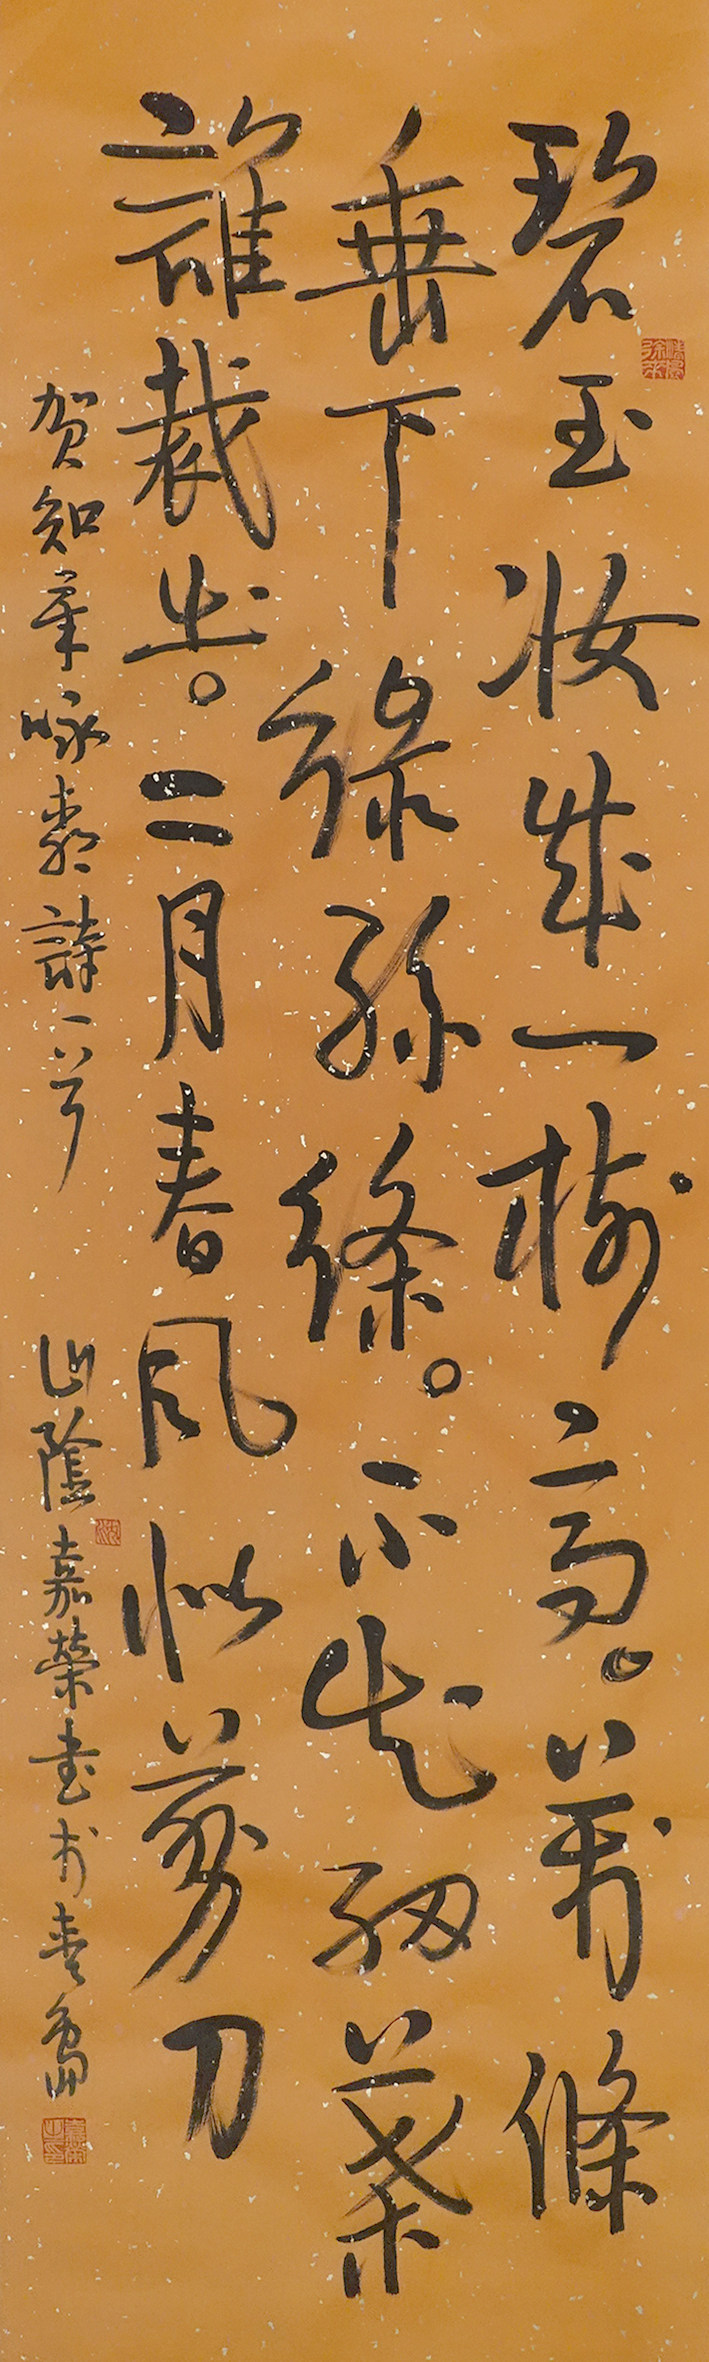 碧玉妆成一樹高。萬條
垂下綠絲縧。不知細葉
誰裁出。二月春风似剪刀
贺知章咏柳詩一首 山陰嘉榮書於青島